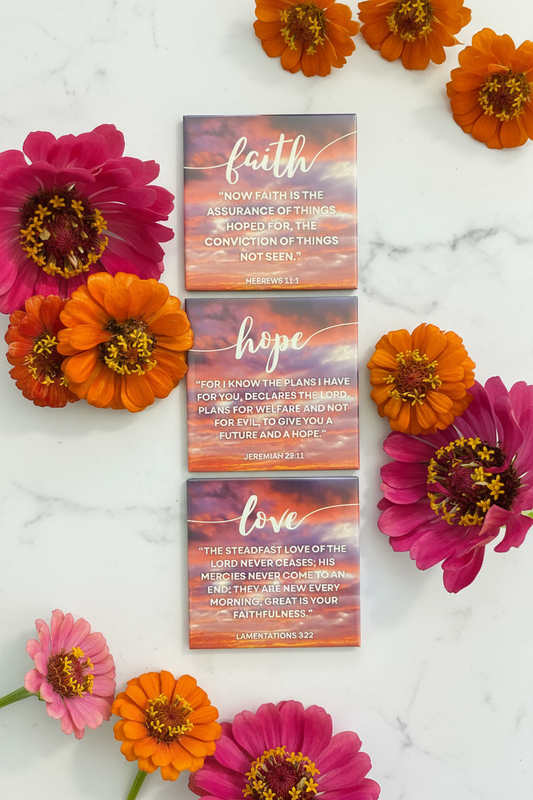 faith
"NOW FAITH IS THE
ASSURANCE OF THINGS
HOPED FOR, THE
CONVICTION OF THINGS
NOT SEEN."
HEBREWS 11:1
hope
"FOR I KNOW THE PLANS I HAVE
FOR YOU, DECLARES THE LORD,
PLANS FOR WELFARE AND NOT
FOR EVIL, TO GIVE YOU A
FUTURE AND A HOPE."
JEREMIAH 29:11
love
"THE STEADFAST LOVE OF THE
LORD NEVER CEASES; HIS
MERCIES NEVER COME TO AN
END; THEY ARE NEW EVERY
MORNING; GREAT IS YOUR
FAITHFULNESS."
LAMENTATIONS 3:22